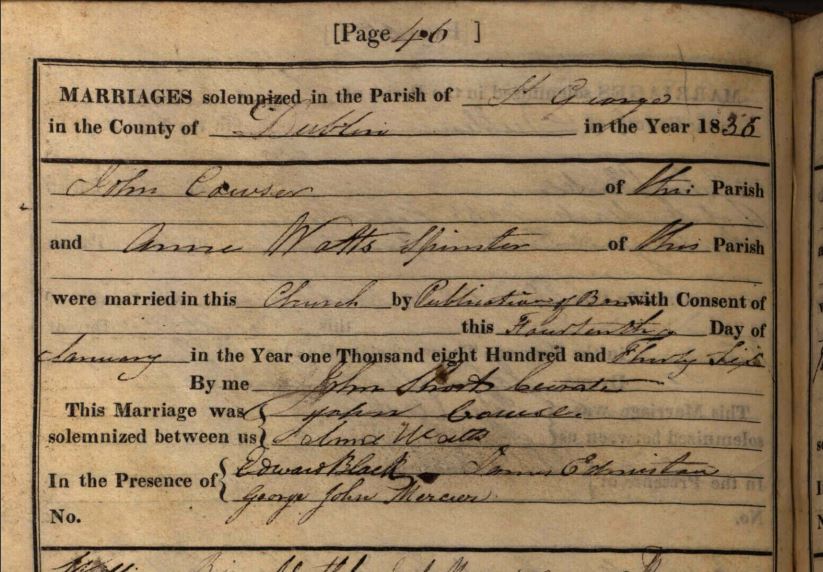 [Page 46 ]
MARRIAGES solemnized in the Parish of St George
in the County of Dublin in the Year 1836
John Cowser of this Parish
and Anne Watts Spinster of this Parish
were married in this Church by Publication of Banns with Consent of
this Fourteenth Day of
January in the Year one Thousand eight Hundred and Thirty Six
By me John Short Curate
This Marriage was John Cowser
solemnized between us Anne Watts
In the Presence of Edward Black James Edmiston
George John Mercier
No.